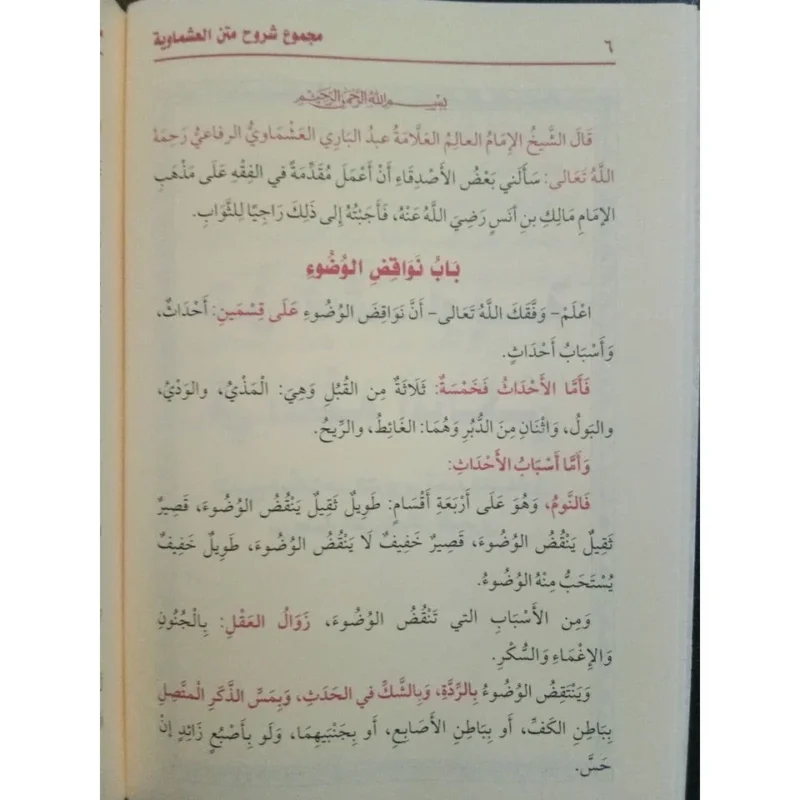 ٦
مجموع شروح متن العشماوية
بِسْمِ اللهِ الرَّحْمَنِ الرَّحِيْمِ
قَالَ الشَّيْخُ الإِمَامُ العَالِمُ العَلَّامَةُ عبدُ البَارِي العَشْمَاوِيُّ الرفاعيُّ رَحِمَهُ
اللَّهُ تَعَالى: سَأَلَني بَعْضُ الأَصْدِقَاءِ أَنْ أَعْمَلَ مُقَدِّمَةً في الفِقْهِ عَلَى مَذْهَبِ
الإِمَامِ مَالِكِ بنِ أنَسٍ رَضِيَ اللَّهُ عَنْهُ، فَأَجَبْتُهُ إلى ذَلِكَ رَاجِيًا لِلثَّوَابِ.
بَابُ نَوَاقِضِ الوُضُوءِ
اعْلَمْ- وَفَّقَكَ اللَّهُ تَعَالى- أَنَّ نَوَاقِضَ الوُضُوءِ عَلَى قِسْمَينِ: أَحْدَاثٌ،
وَأَسْبَابُ أَحْدَاثٍ.
فَأَمَّا الأَحْدَاثُ فَخَمْسَةٌ: ثَلَاثَةٌ مِن القُبُلِ وَهِيَ: الْمَذْيُ، والوَدْيُ،
والبَولُ، وَاثْنَانِ مِنَ الدُّبُرِ وَهُمَا: الغَائِطُ، والرِّيحُ.
وَأَمَّا أَسْبَابُ الأَحْدَاثِ:
فَالنَّومُ، وَهُوَ عَلَى أَرْبَعَةِ أَقْسَامٍ: طَوِيلٌ ثَقِيلٌ يَنْقُضُ الوُضُوءَ، قَصِيرٌ
ثَقِيلٌ يَنْقُضُ الوُضُوءَ، قَصِيرٌ خَفِيفٌ لَا يَنْقُضُ الوُضُوءَ، طَوِيلٌ خَفِيفٌ
يُسْتَحَبُّ مِنْهُ الوُضُوءُ.
وَمِن الأَسْبَابِ التي تَنْقُضُ الوُضُوءَ، زَوَالُ العَقْلِ: بِالْجُنُونِ
وَالإِغْمَاءِ وَالسُّكْرِ.
وَيَنْتَقِضُ الوُضُوءُ بِالرِّدَّةِ، وَبِالشَّكِّ في الحَدَثِ، وَبِمَسِّ الذَّكَرِ الْمتَّصِلِ
بِبَاطِنِ الكَفِّ، أَو بِبَاطِنِ الأَصَابِعِ، أَو بِجَنْبَيهِمَا، وَلَو بِأَصْبُعٍ زَائِدٍ إنْ
حَسَّ.